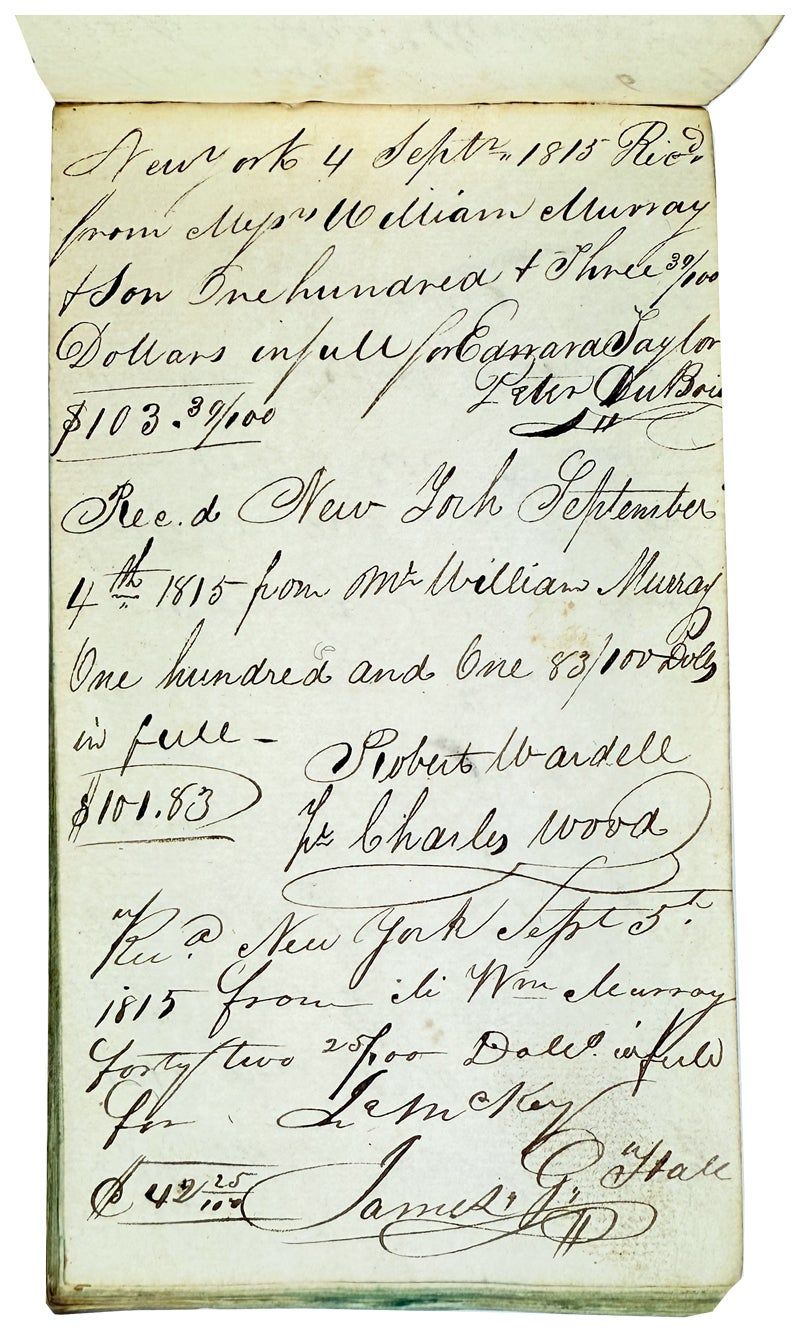 New York 4 Septr. 1815 Recd.
from Messrs William Murray
& Son One hundred & Three 39/100
Dollars in full for Edward Taylor
Peter DuBois
$103.39/100
Rec.d New York September
4th 1815 from Mr William Murray
One hundred and One 83/100 Dolls
in full -
Robert Wardell
$101.83
pr Charles Wood
Recd. New York Sept 5th.
1815 from Wm Murray
forty two 25/100 Dolls. in full
for McKey
$42 25/100 James G. Hall